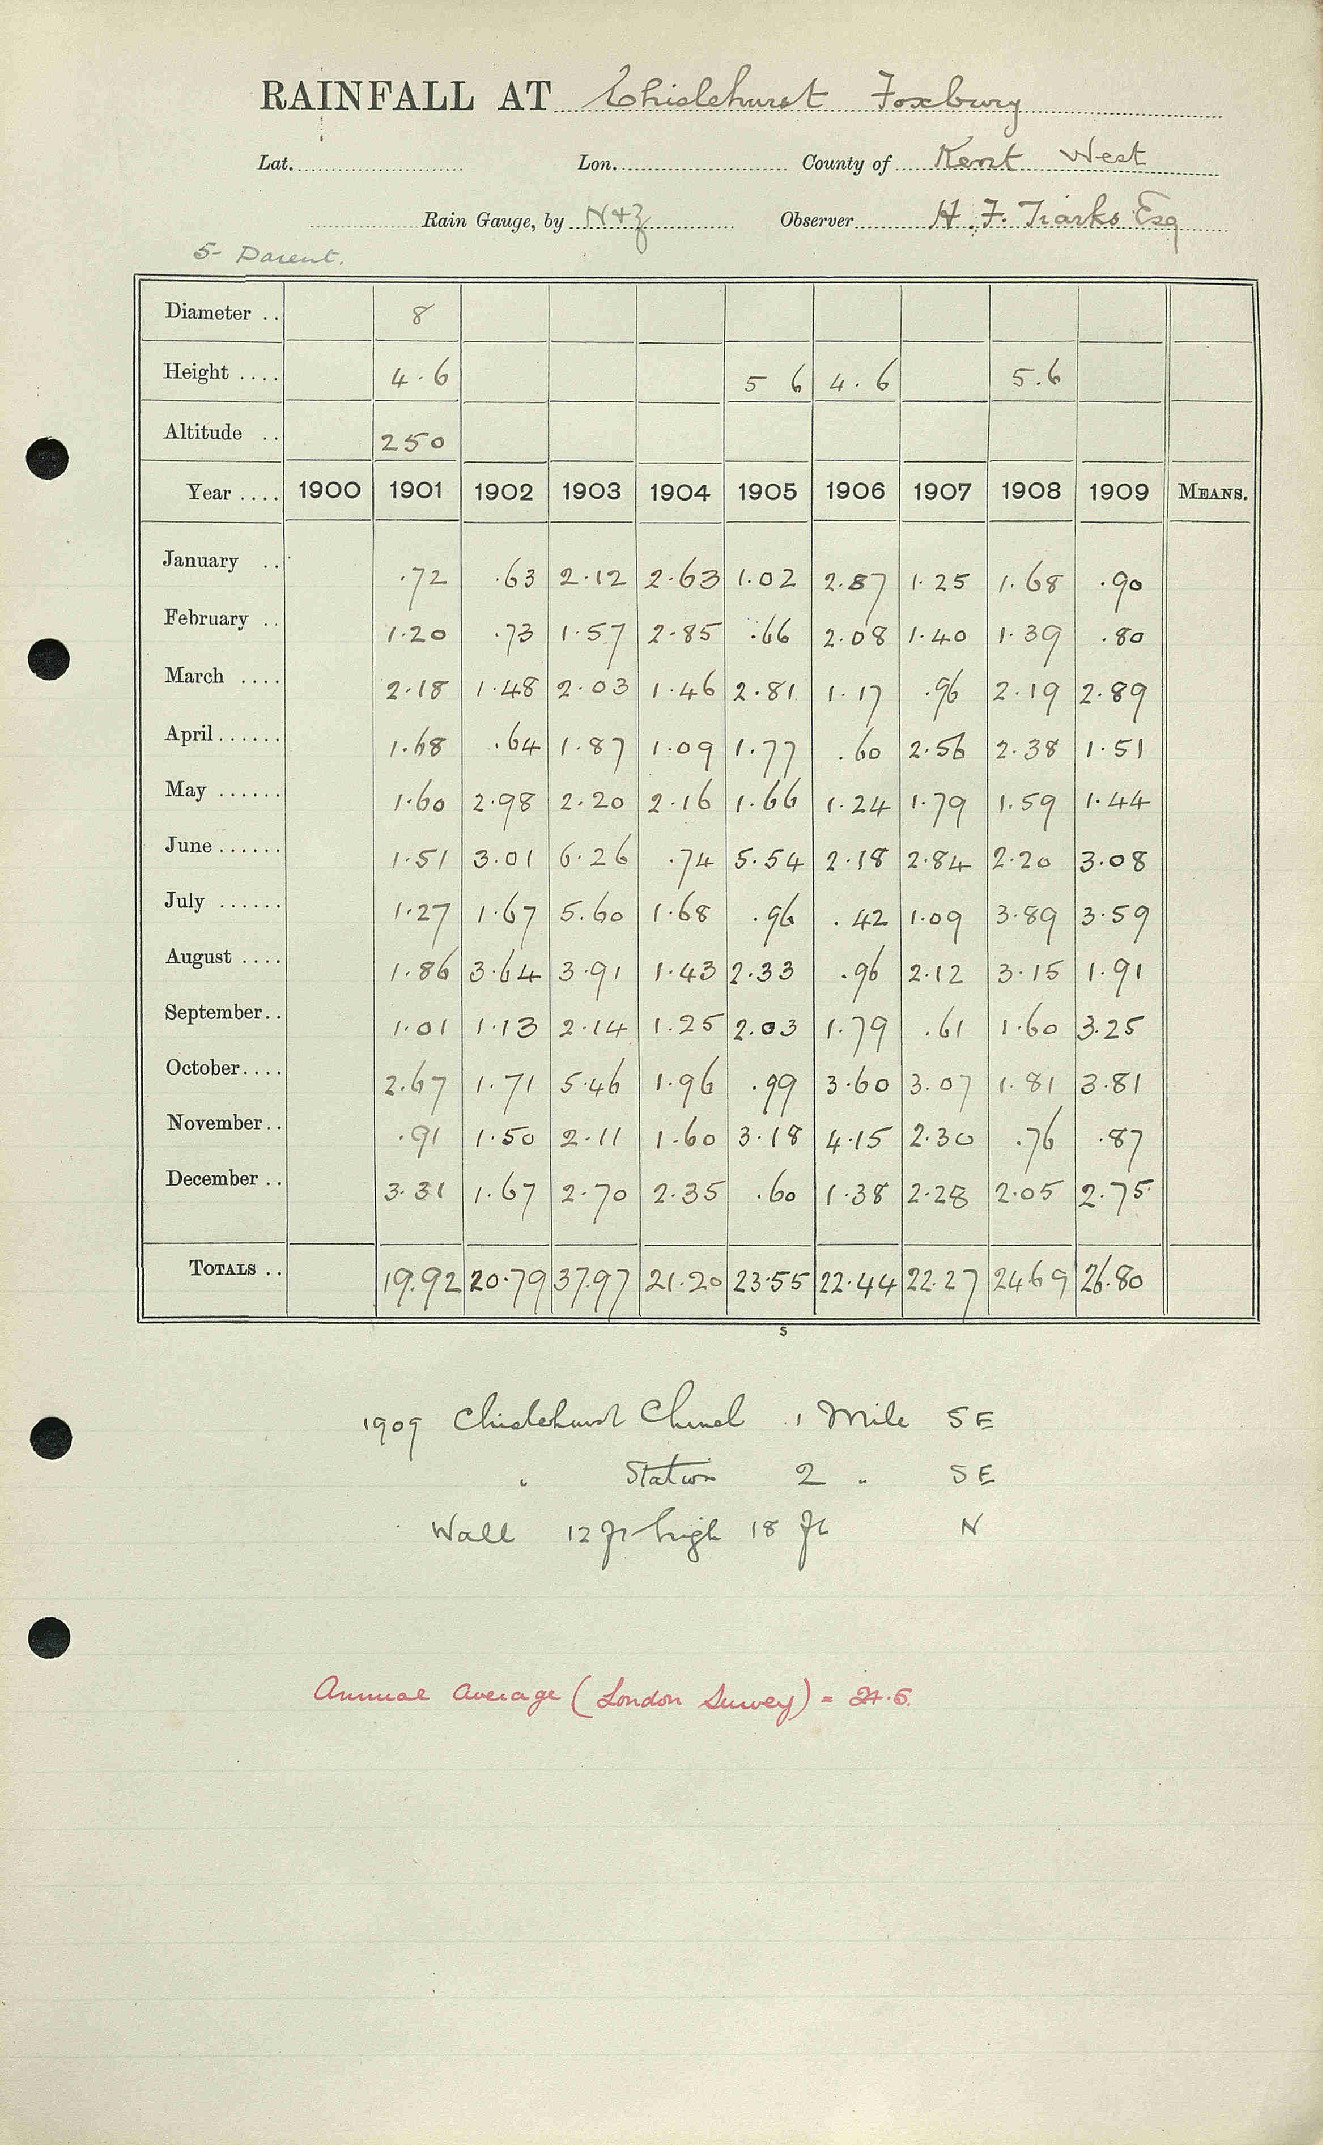 RAINFALL AT Chislehurst Foxbury
Lat. Lon. County of Kent West
Rain Gauge, by N+Z Observer H. F. Tiarks Esq
5- Parent.
Diameter .. 8
Height .... 4.6 5 6 4.6 5.6
Altitude .. 250
Year .... 1900 1901 1902 1903 1904 1905 1906 1907 1908 1909 MEANS.
January .. .72 .63 2.12 2.63 1.02 2.87 1.25 1.68 .90
February .. 1.20 .73 1.57 2.85 .66 2.08 1.40 1.39 .80
March .... 2.18 1.48 2.03 1.46 2.81 1.17 .96 2.19 2.89
April ...... 1.68 .64 1.87 1.09 1.77 .60 2.56 2.38 1.51
May ...... 1.60 2.98 2.20 2.16 1.66 1.24 1.79 1.59 1.44
June ...... 1.51 3.01 6.26 .74 5.54 2.18 2.84 2.20 3.08
July ...... 1.27 1.67 5.60 1.68 .96 .42 1.09 3.89 3.59
August .... 1.86 3.64 3.91 1.43 2.33 .96 2.12 3.15 1.91
September.. 1.01 1.13 2.14 1.25 2.03 1.79 .61 1.60 3.25
October.... 2.67 1.71 5.46 1.96 .99 3.60 3.07 1.81 3.81
November.. .91 1.50 2.11 1.60 3.18 4.15 2.30 .76 .87
December .. 3.31 1.67 2.70 2.35 .60 1.38 2.28 2.05 2.75
TOTALS .. 19.92 20.79 37.97 21.20 23.55 22.44 22.27 24.69 26.80
S
1909 Chislehurst Church 1 Mile SE
" Station 2 " SE
Wall 12 ft high 18 ft N
Annual Average (London Survey) = 24.5